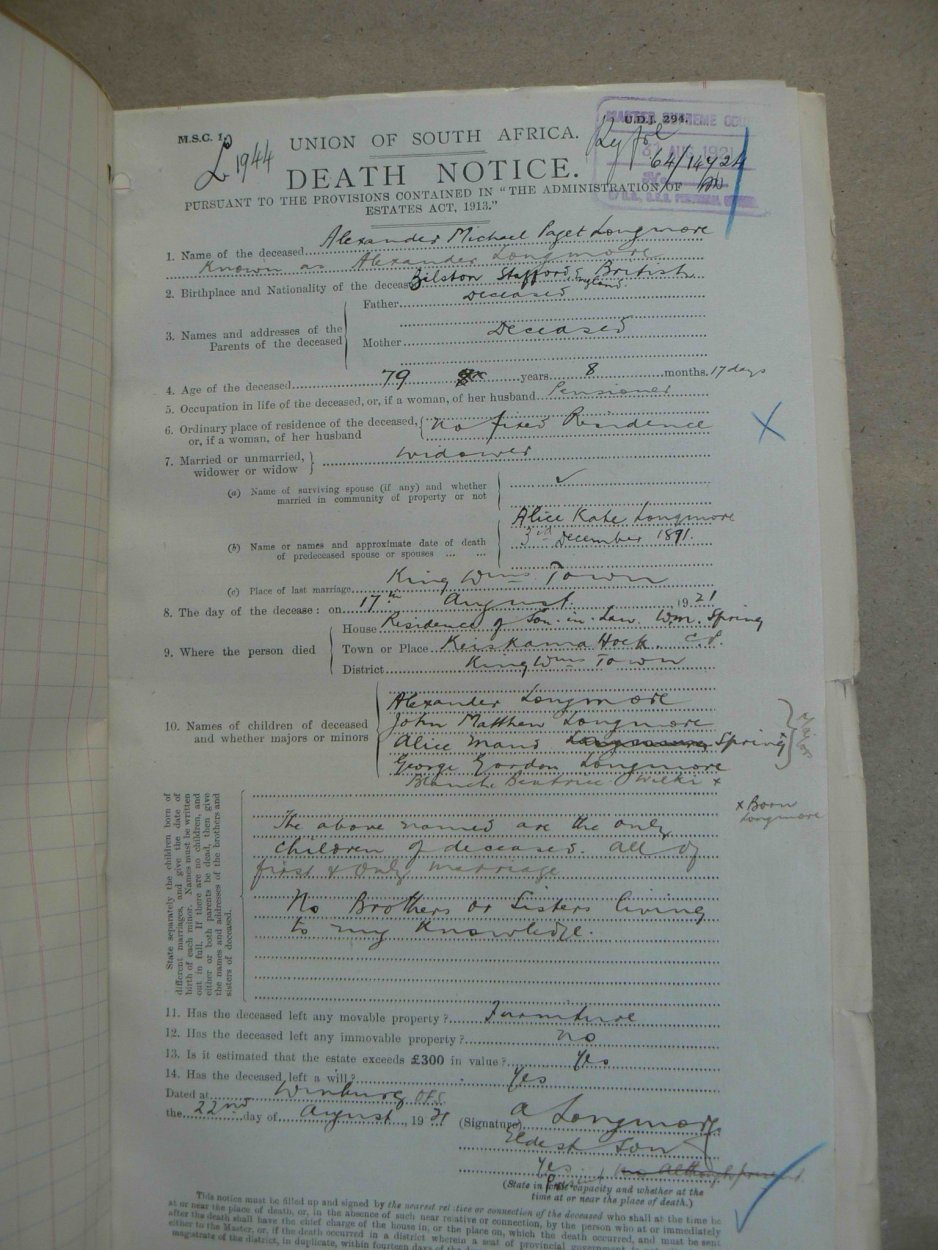 M.S.C. 1.
U.D.J. 294.
L 1944
UNION OF SOUTH AFRICA.
31 AUG 1921
64/1472
DEATH NOTICE.
PURSUANT TO THE PROVISIONS CONTAINED IN "THE ADMINISTRATION OF
ESTATES ACT, 1913."
1. Name of the deceased Alexander Michael Paget Longmore
Known as Alexander Longmore
2. Birthplace and Nationality of the deceased Bilston Stafford England British
3. Names and addresses of the Parents of the deceased
Father Deceased
Mother Deceased
4. Age of the deceased 79 years 8 months. 17 days
5. Occupation in life of the deceased, or, if a woman, of her husband Pensioner
6. Ordinary place of residence of the deceased, or, if a woman, of her husband No fixed Residence
7. Married or unmarried, widower or widow Widower
(a) Name of surviving spouse (if any) and whether
married in community of property or not
Alice Kate Longmore
(b) Name or names and approximate date of death
of predeceased spouse or spouses ... ...
3rd December 1891.
(c) Place of last marriage King Wms Town
8. The day of the decease: on 17th August 1921
9. Where the person died
House Residence of Son-in-Law Wm. Spring
Town or Place Keiskama Hoek C.P.
District King Wms Town
10. Names of children of deceased
and whether majors or minors
Alexander Longmore
John Matthew Longmore
Alice Maud Longmore Spring
George Gordon Longmore
Blanche Beatrice Wilki x
Majors
x Born
Longmore
State separately the children born of
different marriages, and give the date of
birth of each minor. Names must be written
out in full. If there are no children, and
either or both parents be dead, then give
the names and addresses of the brothers and
sisters of deceased.
The above named are the only
Children of deceased. All of
first & only marriage
No Brothers or Sisters living
to my Knowledge.
11. Has the deceased left any movable property? Furniture
12. Has the deceased left any immovable property? no
13. Is it estimated that the estate exceeds £300 in value? Yes
14. Has the deceased left a will? Yes
Dated at Winburg OFS
the 22nd day of August 1921
(Signature) A Longmore
Eldest Son
Yes
(State in capacity and whether at the
time at or near the place of death.)
This notice must be filled up and signed by the nearest relative or connection of the deceased who shall at the time be
at or near the place of death, or, in the absence of such near relative or connection, by the person who at or immediately
after the death shall have the chief charge of the house in, or the place on, which the death occurred, and must be sent
either to the Master, or, if the death occurred in a district wherein a seat of provincial government is not
magistrate of the district, in duplicate, within fourteen days of the